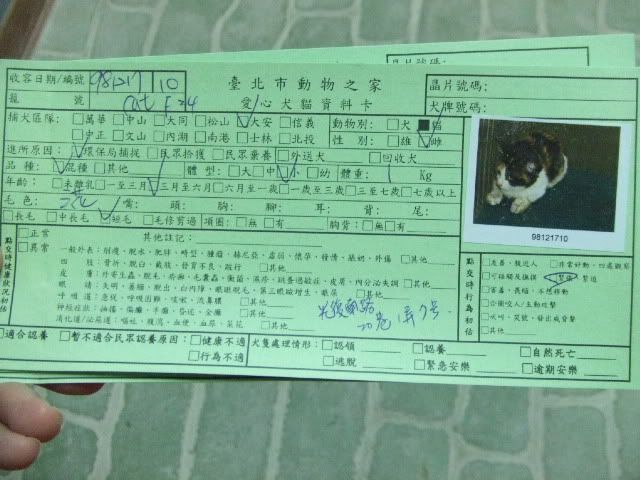 收容日期/編號 981217 10 臺北市動物之家 晶片號碼：
籠 號 Cat F24 愛心犬貓資料卡 犬牌號碼：
捕犬區隊：□萬華□中山□大同□松山☑大安□信義 動物別：□犬■貓
□中正□文山□內湖□南港□士林□北投 性 別：□雄☑雌
進所原因：☑環保局捕捉□民眾拾獲□民眾棄養□外送犬 □回收犬
品 種：☑混種□其他 體型：□大□中☑小□幼 體重：1 Kg
年齡：□未離乳□一至三月☑三月至六月□六月至一歲□一歲至三歲□三至七歲□七歲以上
毛 色：三花 嘴： 頭： 胸： 腳： 耳： 背： 尾：
□長毛 □中長毛☑短毛 □毛修剪過 項圈：□無□有 胸背：□無□有
98121710
點交時健康狀況初估
□正常 其他註記：
□異常
一般外表：削瘦、脫水、肥胖、畸型、腫瘤、赫尼亞、虛弱、懷孕、發情、哺奶、外傷 □其他
四 肢：骨折、脫白、截肢、發育不良、跛行 □其他
皮 膚：外寄生蟲、脫毛、疥癬、毛囊蟲、黴菌、濕疹、跳蚤過敏症、皮屑、內分泌失調 □其他
眼 睛：失明、萎縮、脫出、白內障、眼瞼脫毛、第三眼瞼增生、眼屎 □其他
呼吸道：急促、呼吸困難、咳嗽、流鼻膿 □其他
神經症狀：抽搐、癱瘓、半癱、昏迷、全癱 □其他
消化道/泌尿道：嘔吐、腹瀉、血便、血尿、菜花 □其他
光復南路
弄7號
點交時行為初估
□友善、親近人 □非常好動、四處觀察
□可碰觸及撫摸 緊張 緊迫
□害羞、畏縮、不想移動
□會攔咬人/主動攻擊
□吠叫、哭號、發出威脅聲
□其他
□適合認養 □暫不適合民眾認養原因：□健康不適 犬隻處理情形：□認領 □認養 □自然死亡
□行為不適 □逃脫 □緊急安樂 □逾期安樂